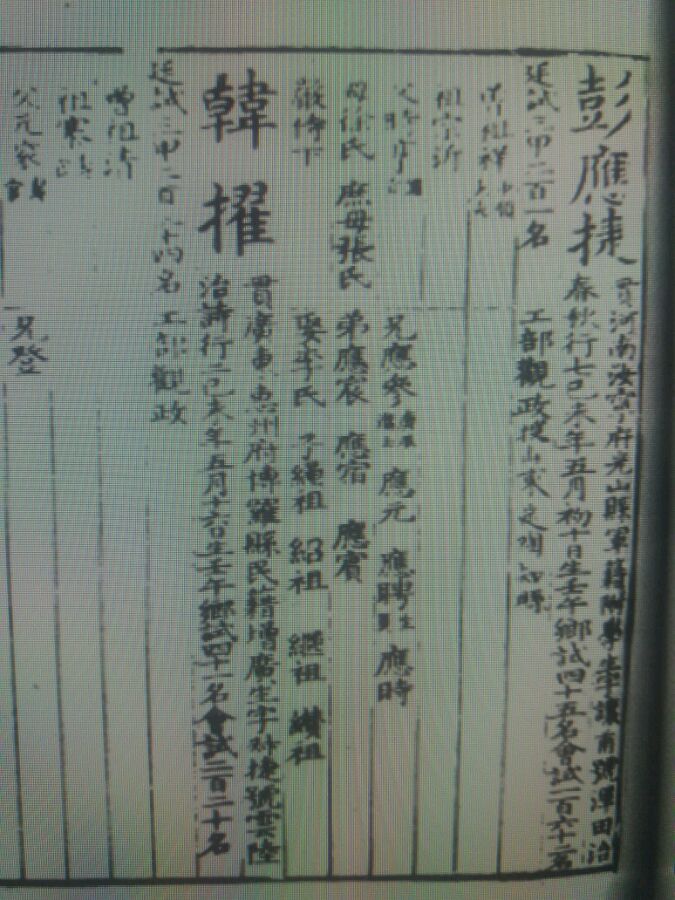 彭應捷
貫河南汝寧府光山縣軍籍附學生字讓甫號澤田治
春秋行七己未年五月初十日生壬午鄉試四十五名會試一百六十二名
廷試三甲二百一名 工部觀政授山東定陶知縣
曾祖祥
祖宗沂
父 兄應參 應元 應聘 應時
母徐氏 庶母張氏 弟應宸 應宿 應賓
嚴侍下 娶李氏 子繩祖 紹祖 繼祖 纘祖
韓擢
貫廣東惠州府博羅縣民籍增廣生字 捷號雲陸
治詩行二己未年五月十六日生壬午鄉試四十一名會試二百二十名
廷試三甲二百 十四名 工部觀政
曾祖清
祖
父元 兄登